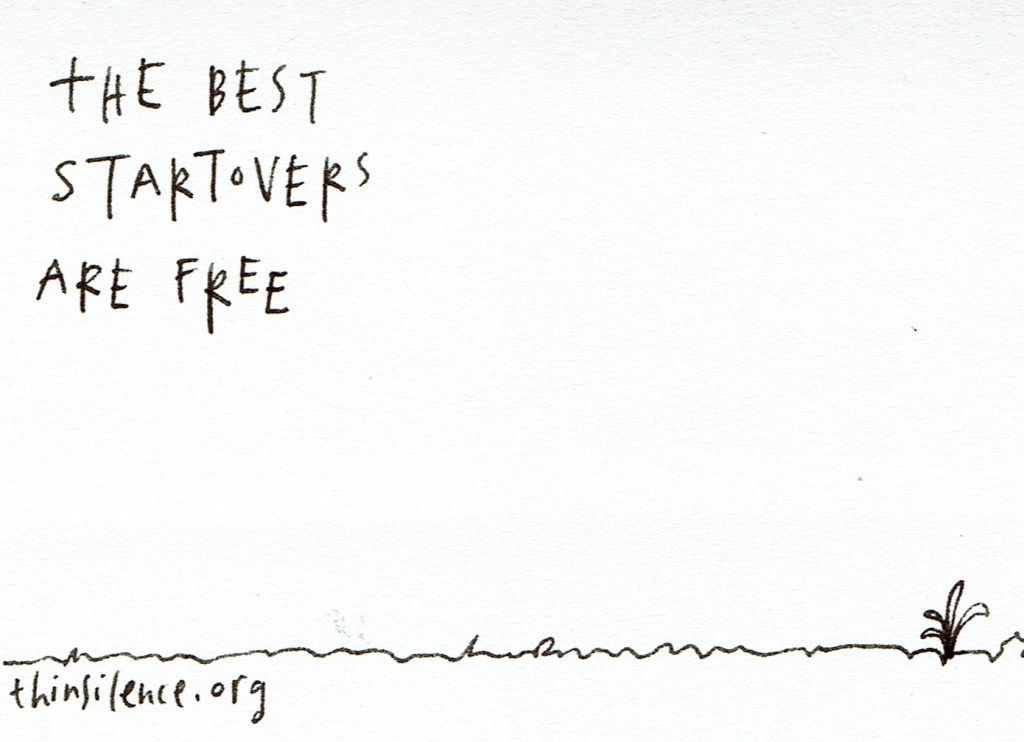 THE BEST
STARTOVERS
ARE FREE
thinsilence.org